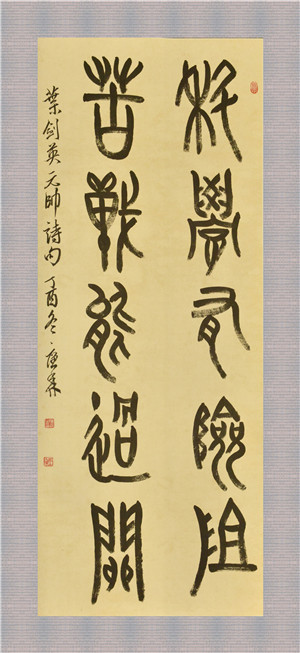 科學有險阻
苦戰能過關
葉剑英元帥詩句 丁酉冬